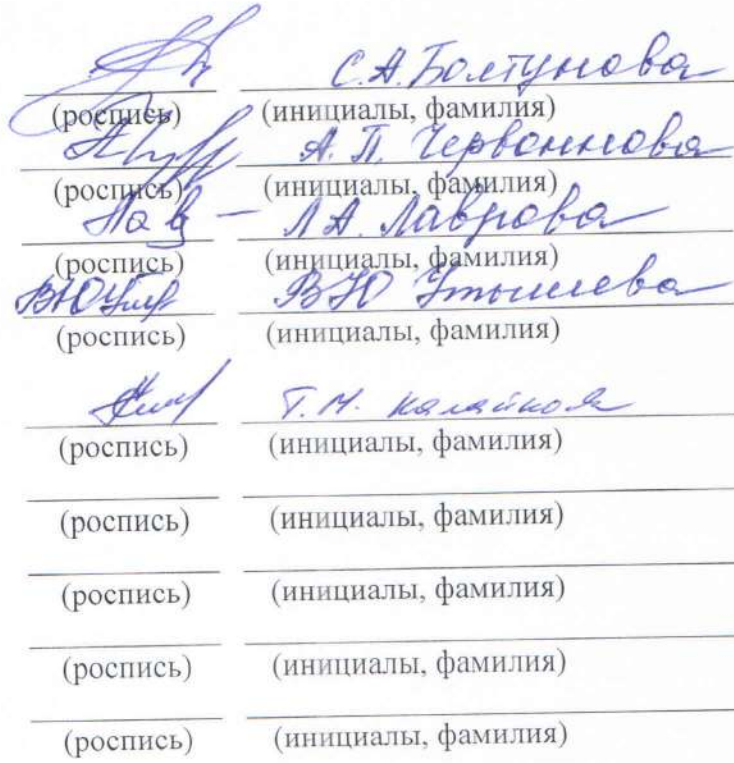 С.А. Болтунова
(роспись) (инициалы, фамилия)
А.П. Червоннова
(роспись) (инициалы, фамилия)
Л.А. Лаврова
(роспись) (инициалы, фамилия)
ВЮ
(роспись) (инициалы, фамилия)
Т.М.
(роспись) (инициалы, фамилия)
(роспись) (инициалы, фамилия)
(роспись) (инициалы, фамилия)
(роспись) (инициалы, фамилия)
(роспись) (инициалы, фамилия)